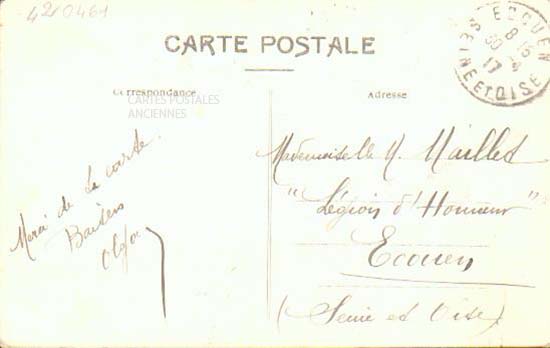 42/0461
CARTE POSTALE
Correspondance
Adresse
CARTES POSTALES
ANCIENNES
ECOUEN
8 15
30 - 3
17
SEINE ET OISE
Merci de la carte.
Baisers
Olga
Mademoiselle M. Maillet
"Légion d'Honneur"
Ecouen
(Seine et Oise)